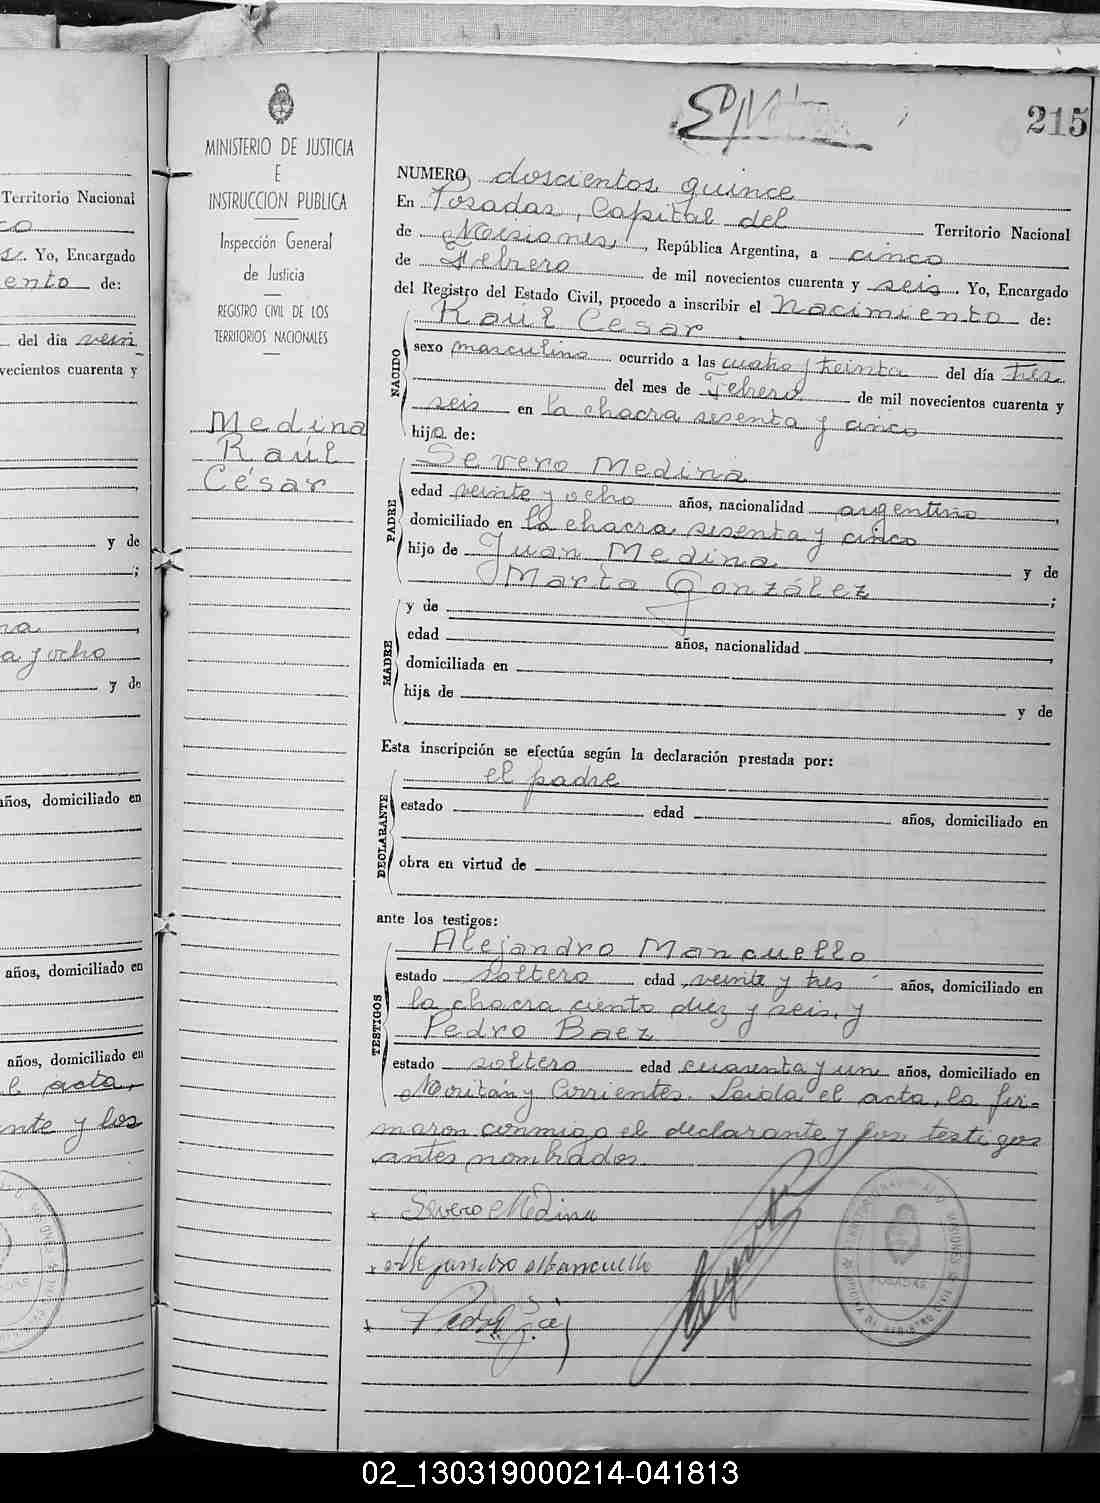 215
MINISTERIO DE JUSTICIA
E
INSTRUCCION PUBLICA
Inspección General
de Justicia
REGISTRO CIVIL DE LOS
TERRITORIOS NACIONALES
Medina
Raúl
César
Territorio Nacional
co
s. Yo, Encargado
ento de:
del día vein
vecientos cuarenta y
y de
;
na
a y ocho
y de
años, domiciliado en
años, domiciliado en
años, domiciliado en
el acta,
nte y los
NUMERO doscientos quince
En Posadas, Capital del Territorio Nacional
de Misiones, República Argentina, a cinco
de Febrero de mil novecientos cuarenta y seis. Yo, Encargado
del Registro del Estado Civil, procedo a inscribir el Nacimiento de:
NACIDO
Raúl César
sexo masculino ocurrido a las cuatro y treinta del día tres
del mes de Febrero de mil novecientos cuarenta y
seis en la chacra sesenta y cinco
hijo de:
PADRE
Severo Medina
edad veinte y ocho años, nacionalidad argentino,
domiciliado en la chacra sesenta y cinco
hijo de Juan Medina y de
Marta González ;
MADRE
y de
edad años, nacionalidad ,
domiciliada en
hija de y de
Esta inscripción se efectúa según la declaración prestada por:
DECLARANTE
el padre
estado edad años, domiciliado en
obra en virtud de
ante los testigos:
TESTIGOS
Alejandro Mancuello
estado soltero edad veinte y tres años, domiciliado en
la chacra ciento diez y seis, y
Pedro Baez
estado soltero edad cuarenta y un años, domiciliado en
y Corrientes. Leida el acta, la fir-
maron conmigo el declarante y los testigos
antes nombrados.
x Severo Medina
x Alejandro Mancuello
x Pedro
POSADAS
02_130319000214-041813